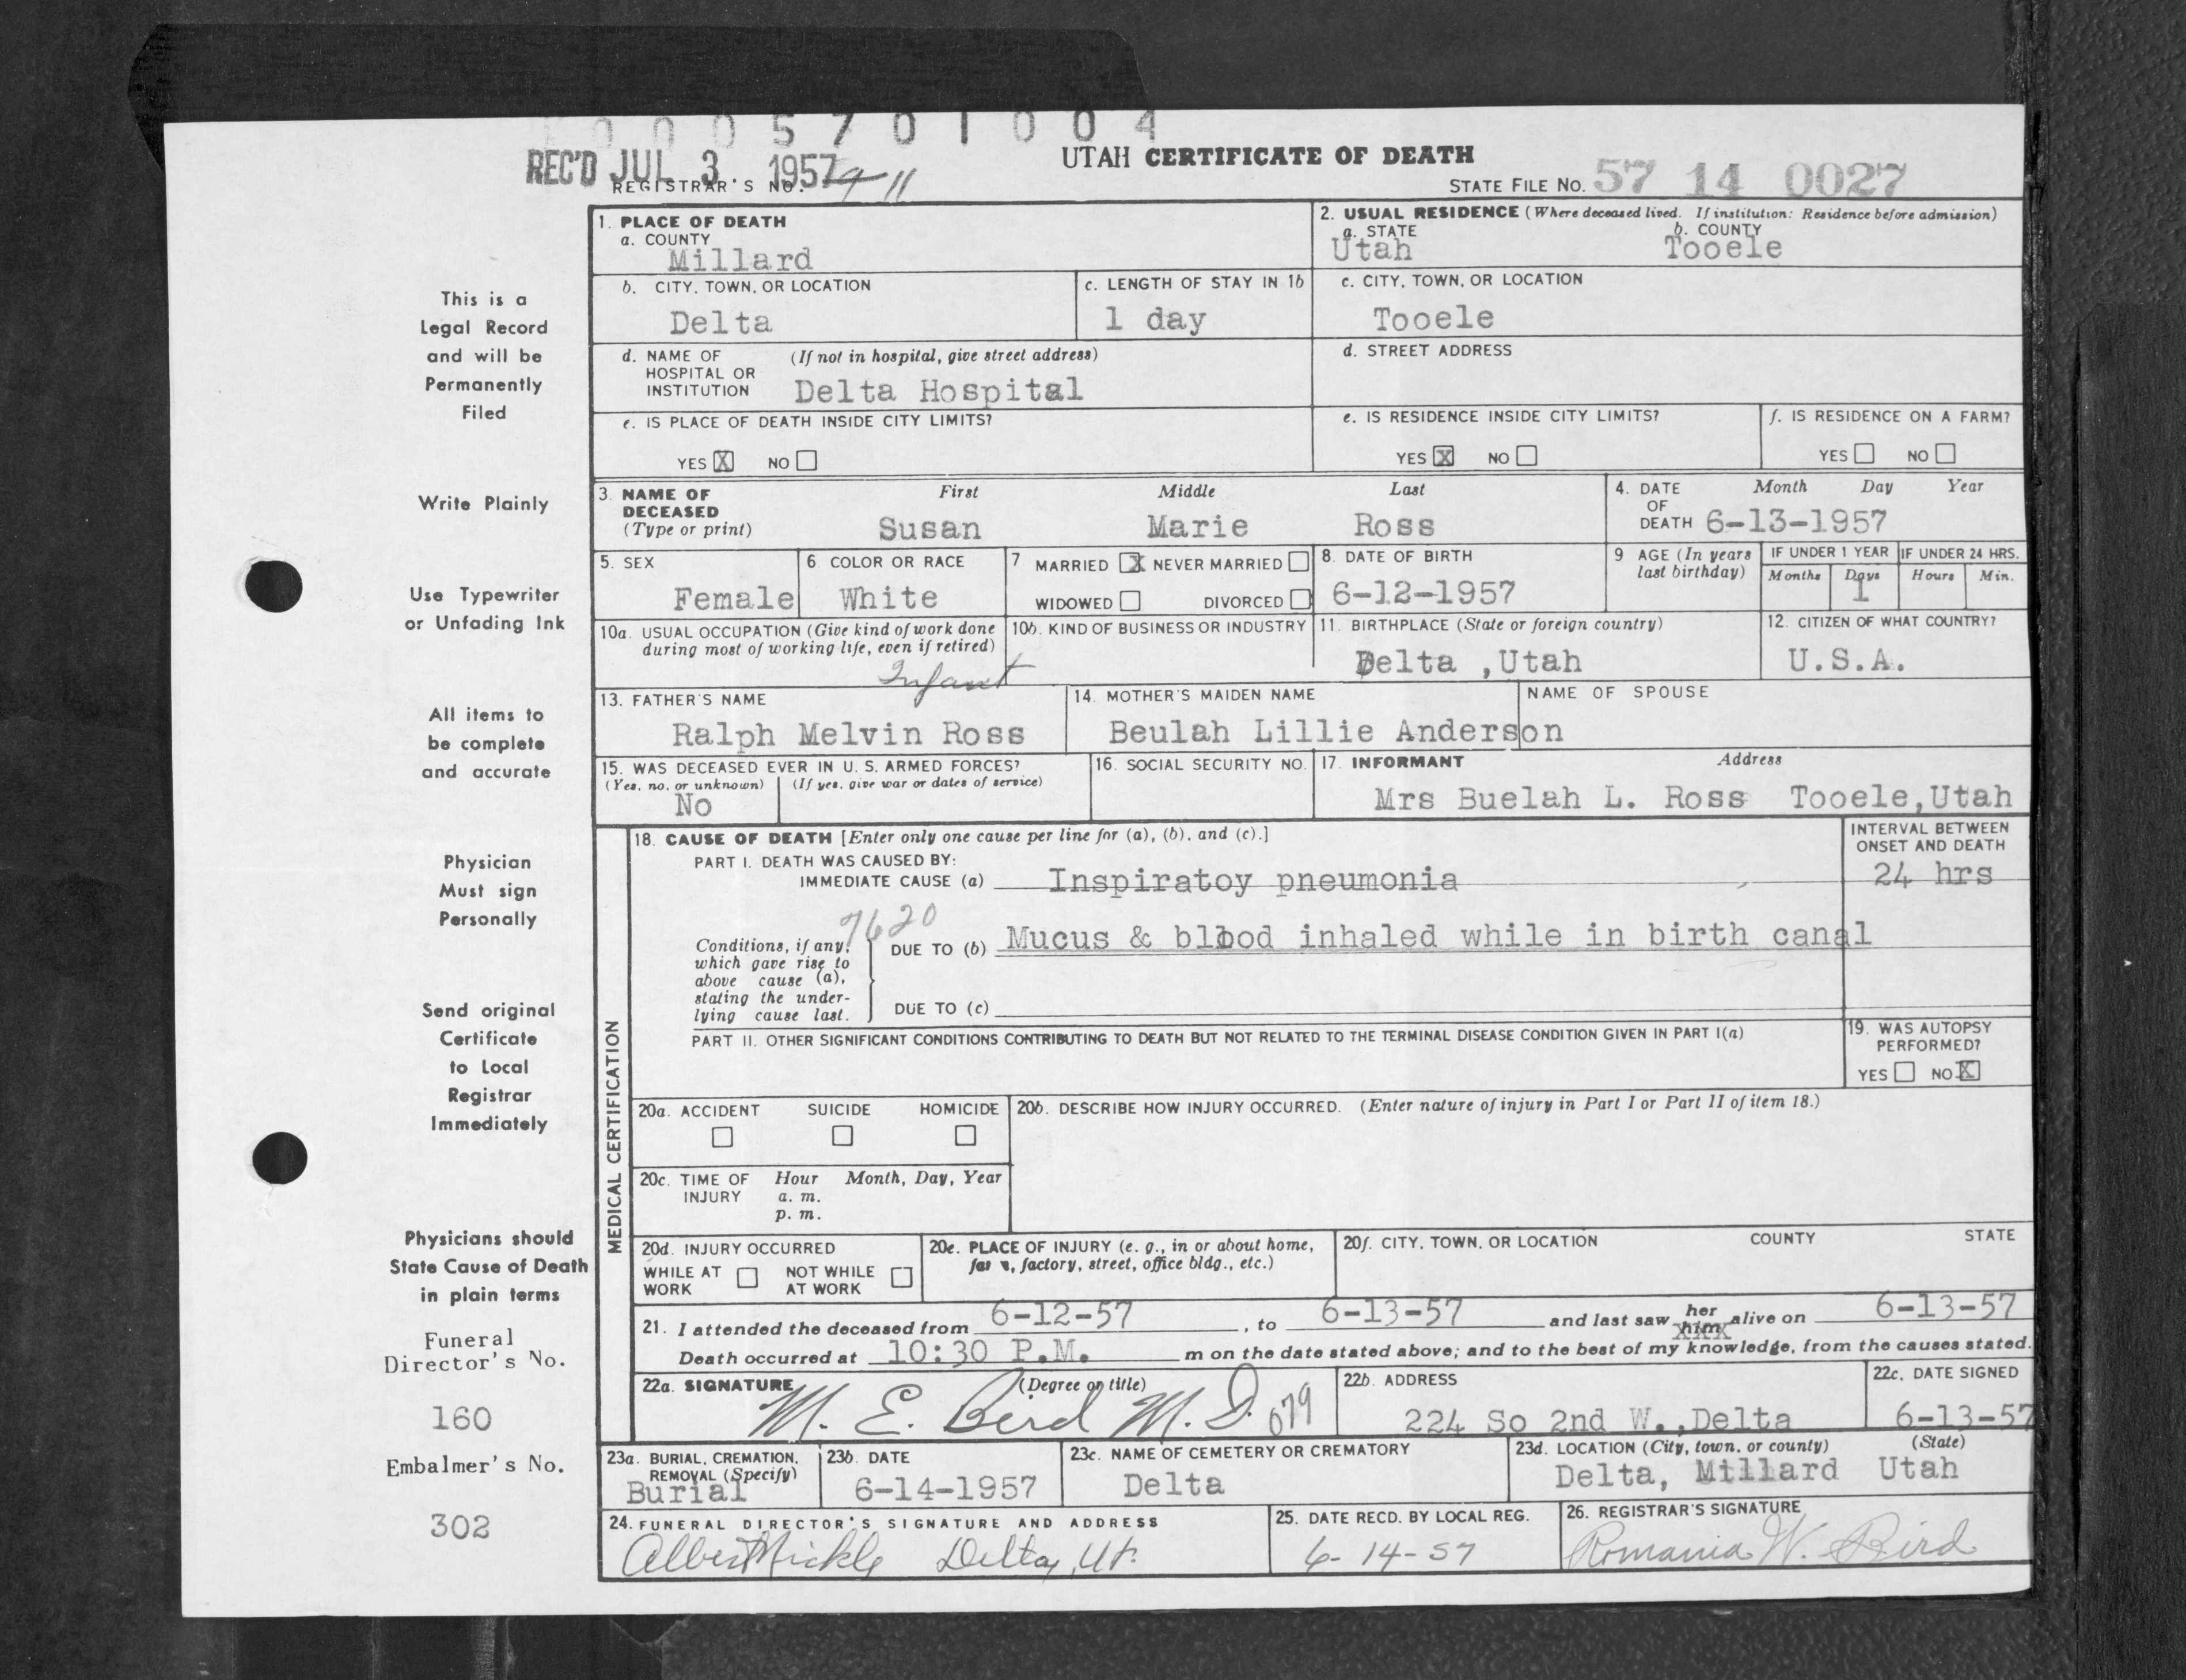 0005701004
REC'D JUL 3 1957
UTAH CERTIFICATE OF DEATH
REGISTRAR'S NO. 9-11
STATE FILE NO. 57 14 0027
This is a
Legal Record
and will be
Permanently
Filed
Write Plainly
Use Typewriter
or Unfading Ink
All items to
be complete
and accurate
Physician
Must sign
Personally
Send original
Certificate
to Local
Registrar
Immediately
Physicians should
State Cause of Death
in plain terms
Funeral
Director's No.
160
Embalmer's No.
302
1. PLACE OF DEATH
a. COUNTY
Millard
2. USUAL RESIDENCE (Where deceased lived. If institution: Residence before admission)
a. STATE b. COUNTY
Utah Tooele
b. CITY, TOWN, OR LOCATION
Delta
c. LENGTH OF STAY IN 1b
1 day
c. CITY, TOWN, OR LOCATION
Tooele
d. NAME OF (If not in hospital, give street address)
HOSPITAL OR
INSTITUTION Delta Hospital
d. STREET ADDRESS
e. IS PLACE OF DEATH INSIDE CITY LIMITS?
YES X NO
e. IS RESIDENCE INSIDE CITY LIMITS?
YES X NO
f. IS RESIDENCE ON A FARM?
YES NO
3. NAME OF First Middle Last
DECEASED
(Type or print) Susan Marie Ross
4. DATE Month Day Year
OF
DEATH 6-13-1957
5. SEX
Female
6 COLOR OR RACE
White
7 MARRIED X NEVER MARRIED
WIDOWED DIVORCED
8. DATE OF BIRTH
6-12-1957
9 AGE (In years
last birthday)
IF UNDER 1 YEAR IF UNDER 24 HRS.
Months Days Hours Min.
1
10a. USUAL OCCUPATION (Give kind of work done
during most of working life, even if retired)
Infant
10b. KIND OF BUSINESS OR INDUSTRY
11. BIRTHPLACE (State or foreign country)
Delta ,Utah
12. CITIZEN OF WHAT COUNTRY?
U.S.A.
13. FATHER'S NAME
Ralph Melvin Ross
14. MOTHER'S MAIDEN NAME
Beulah Lillie Anderson
NAME OF SPOUSE
15. WAS DECEASED EVER IN U. S. ARMED FORCES?
(Yes, no, or unknown) (If yes, give war or dates of service)
No
16. SOCIAL SECURITY NO.
17. INFORMANT Address
Mrs Buelah L. Ross Tooele,Utah
MEDICAL CERTIFICATION
18. CAUSE OF DEATH [Enter only one cause per line for (a), (b), and (c).]
INTERVAL BETWEEN
ONSET AND DEATH
PART I. DEATH WAS CAUSED BY:
IMMEDIATE CAUSE (a) Inspiratoy pneumonia 24 hrs
7620
Conditions, if any,
which gave rise to
above cause (a),
stating the under-
lying cause last.
DUE TO (b) Mucus & blood inhaled while in birth canal
DUE TO (c)
PART II. OTHER SIGNIFICANT CONDITIONS CONTRIBUTING TO DEATH BUT NOT RELATED TO THE TERMINAL DISEASE CONDITION GIVEN IN PART I(a)
19. WAS AUTOPSY
PERFORMED?
YES NO X
20a. ACCIDENT SUICIDE HOMICIDE
20b. DESCRIBE HOW INJURY OCCURRED. (Enter nature of injury in Part I or Part II of item 18.)
20c. TIME OF Hour Month, Day, Year
INJURY a. m.
p. m.
20d. INJURY OCCURRED
WHILE AT NOT WHILE
WORK AT WORK
20e. PLACE OF INJURY (e. g., in or about home,
farm, factory, street, office bldg., etc.)
20f. CITY, TOWN, OR LOCATION COUNTY STATE
21. I attended the deceased from 6-12-57, to 6-13-57 and last saw her him alive on 6-13-57
Death occurred at 10:30 P.M. m on the date stated above; and to the best of my knowledge, from the causes stated.
22a. SIGNATURE (Degree or title)
M. E. Bird M. D. 679
22b. ADDRESS
224 So 2nd W.,Delta
22c. DATE SIGNED
6-13-57
23a. BURIAL, CREMATION,
REMOVAL (Specify)
Burial
23b. DATE
6-14-1957
23c. NAME OF CEMETERY OR CREMATORY
Delta
23d. LOCATION (City, town, or county) (State)
Delta, Millard Utah
24. FUNERAL DIRECTOR'S SIGNATURE AND ADDRESS
Albert Nickle Delta, Ut.
25. DATE RECD. BY LOCAL REG.
6-14-57
26. REGISTRAR'S SIGNATURE
Romania W. Bird